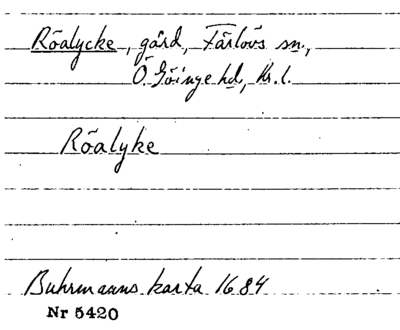 Röalycke, gård, Färlövs sn,
Ö. Göinge hd, Kr. l.
Röalyke
Buhrmanns karta 1684
Nr 5420